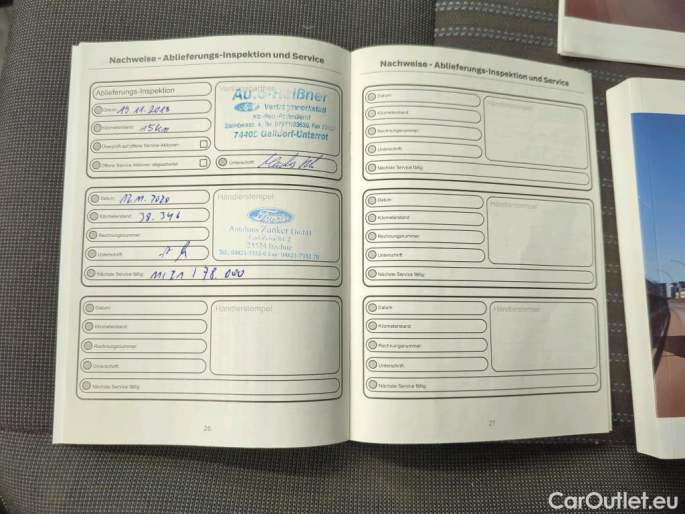 Nachweise - Ablieferungs-Inspektion und Service
Ablieferungs-Inspektion
Datum 19.11.2018
Kilometerstand 15km
Überprüft auf offene Service-Aktionen
Offene Service-Aktionen abgearbeitet
Vertragswerkstatt
74405 Gaildorf-Unterrot
Unterschrift
Datum
Kilometerstand 38.346
Rechnungsnummer
Unterschrift
Nächste Service fällig: 11/21 / 78.000
Händlerstempel
Ford
Autohaus
Datum
Kilometerstand
Rechnungsnummer
Unterschrift
Nächste Service fällig:
Händlerstempel
26
Nachweise - Ablieferungs-Inspektion und Service
Datum
Kilometerstand
Rechnungsnummer
Unterschrift
Nächste Service fällig:
Händlerstempel
Datum
Kilometerstand
Rechnungsnummer
Unterschrift
Nächste Service fällig:
Händlerstempel
Datum
Kilometerstand
Rechnungsnummer
Unterschrift
Nächste Service fällig:
Händlerstempel
27
CarOutlet.eu